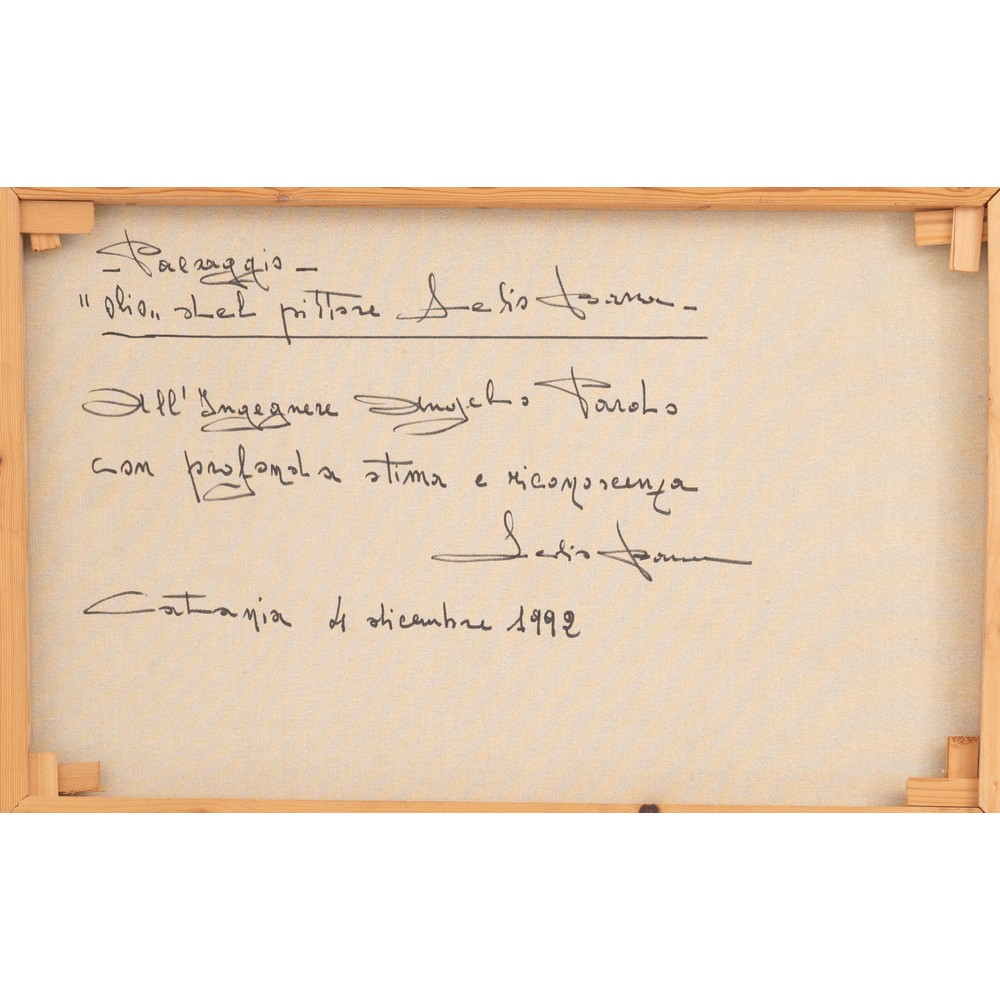 - Paesaggio -
"olio" del pittore
All'Ingegnere Angelo
con profonda stima e riconoscenza
Catania 4 dicembre 1992